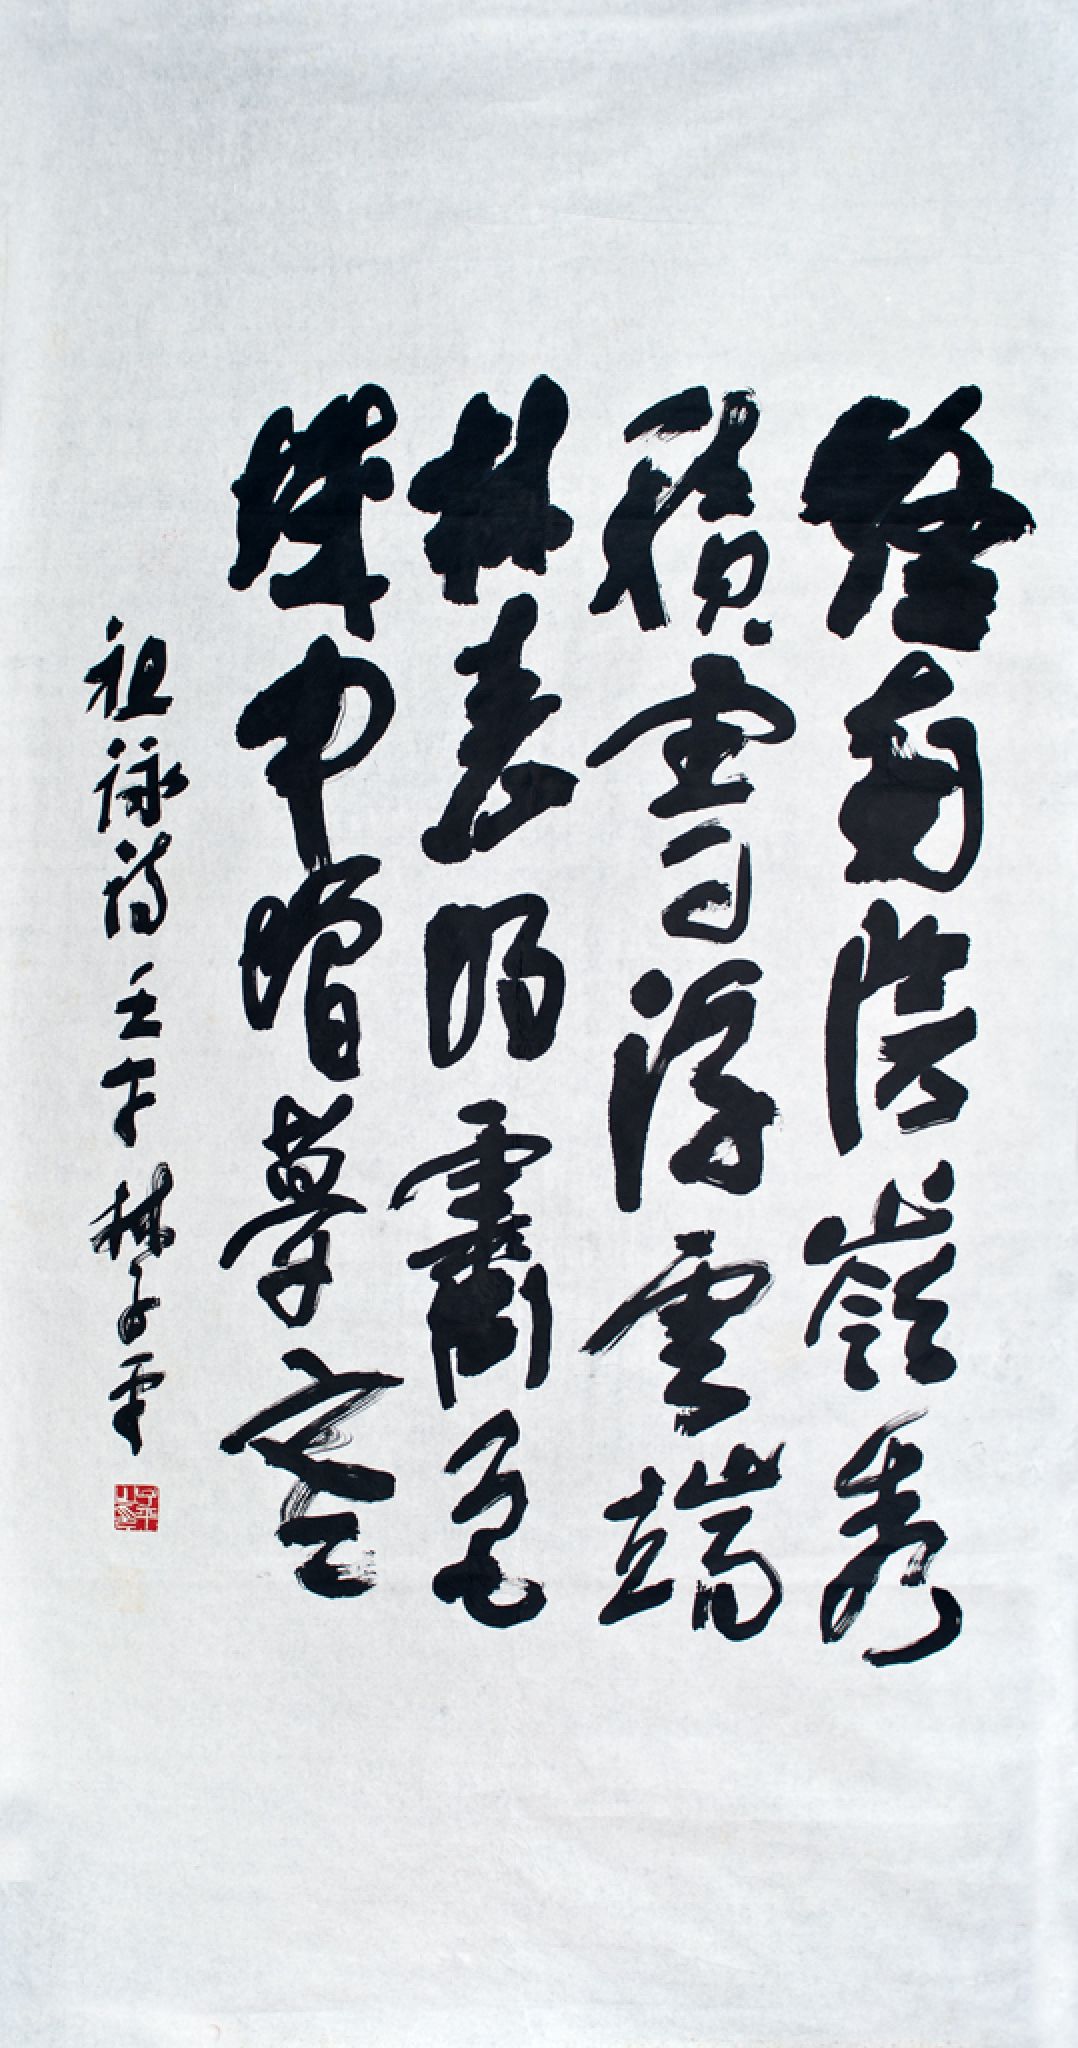 終南陰嶺秀
積雪浮雲端
林表明霽色
城中增暮寒
祖詠詩 壬午 林子平